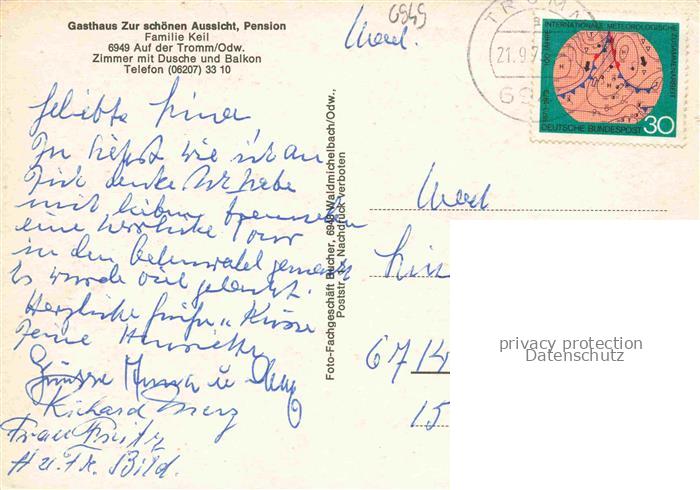 Gasthaus Zur schönen Aussicht, Pension
Familie Keil
6949 Auf der Tromm/Odw.
Zimmer mit Dusche und Balkon
Telefon (06207) 33 10
6949
TROMM
21.9.7
INTERNATIONALE METEOROLOGISCHE ZUSAMMENARBEIT
100 JAHRE
1873-1973
DEUTSCHE BUNDESPOST 30
Geliebte
Du siehst wie ich an
Dich denke. Wir haben
mit lieben
eine herrliche Tour
in den Odenwald gemacht
Es wurde viel gelacht.
Herzliche Grüße u. Küsse
Deine Henriette
Grüsse
Richard Merz
Frau Fritz
H. u. Fr. Bild.
Foto-Fachgeschäft Bucher, 6948 Waldmichelbach/Odw.,
Poststr. Nachdruck verboten
67
15
privacy protection
Datenschutz